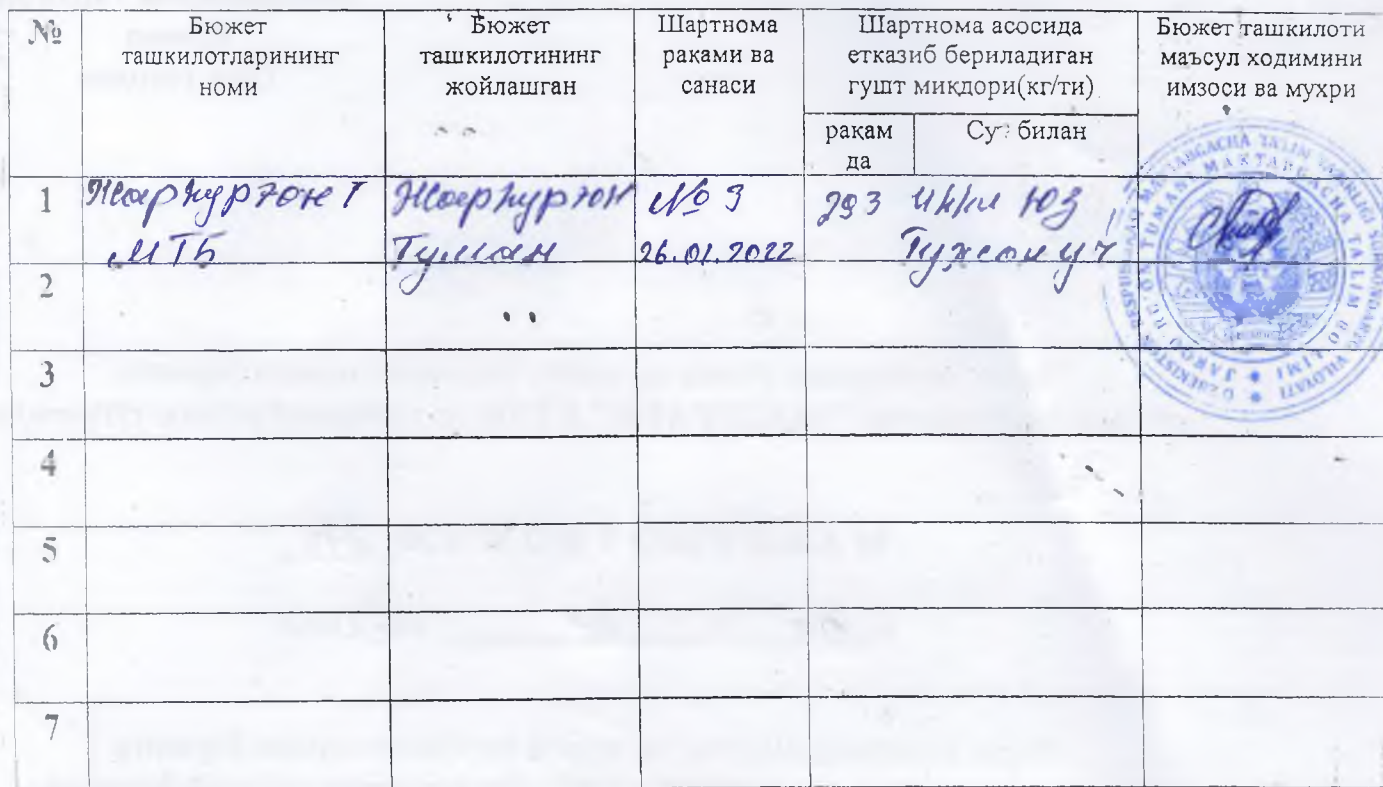 №
Бюжет
ташкилотларининг
номи
Бюжет
ташкилотининг
жойлашган
Шартнома
раками ва
санаси
Шартнома асосида
етказиб бериладиган
гушт микдори(кг/ти)
ракам
да
Суз билан
Бюжет ташкилоти
маъсул ходимини
имзоси ва мухри
1
Жаркургон Т
МТБ
Жаркургон
Туман
№ 9
26.01.2022
293
Икки юз
Туксон уч
2
3
4
5
6
7